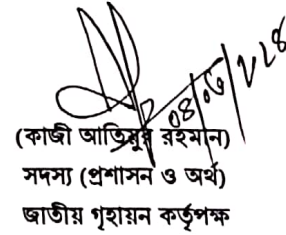 ০৪/০৬/২২৪
(কাজী আতিয়ুর রহমান)
সদস্য (প্রশাসন ও অর্থ)
জাতীয় গৃহায়ন কর্তৃপক্ষ